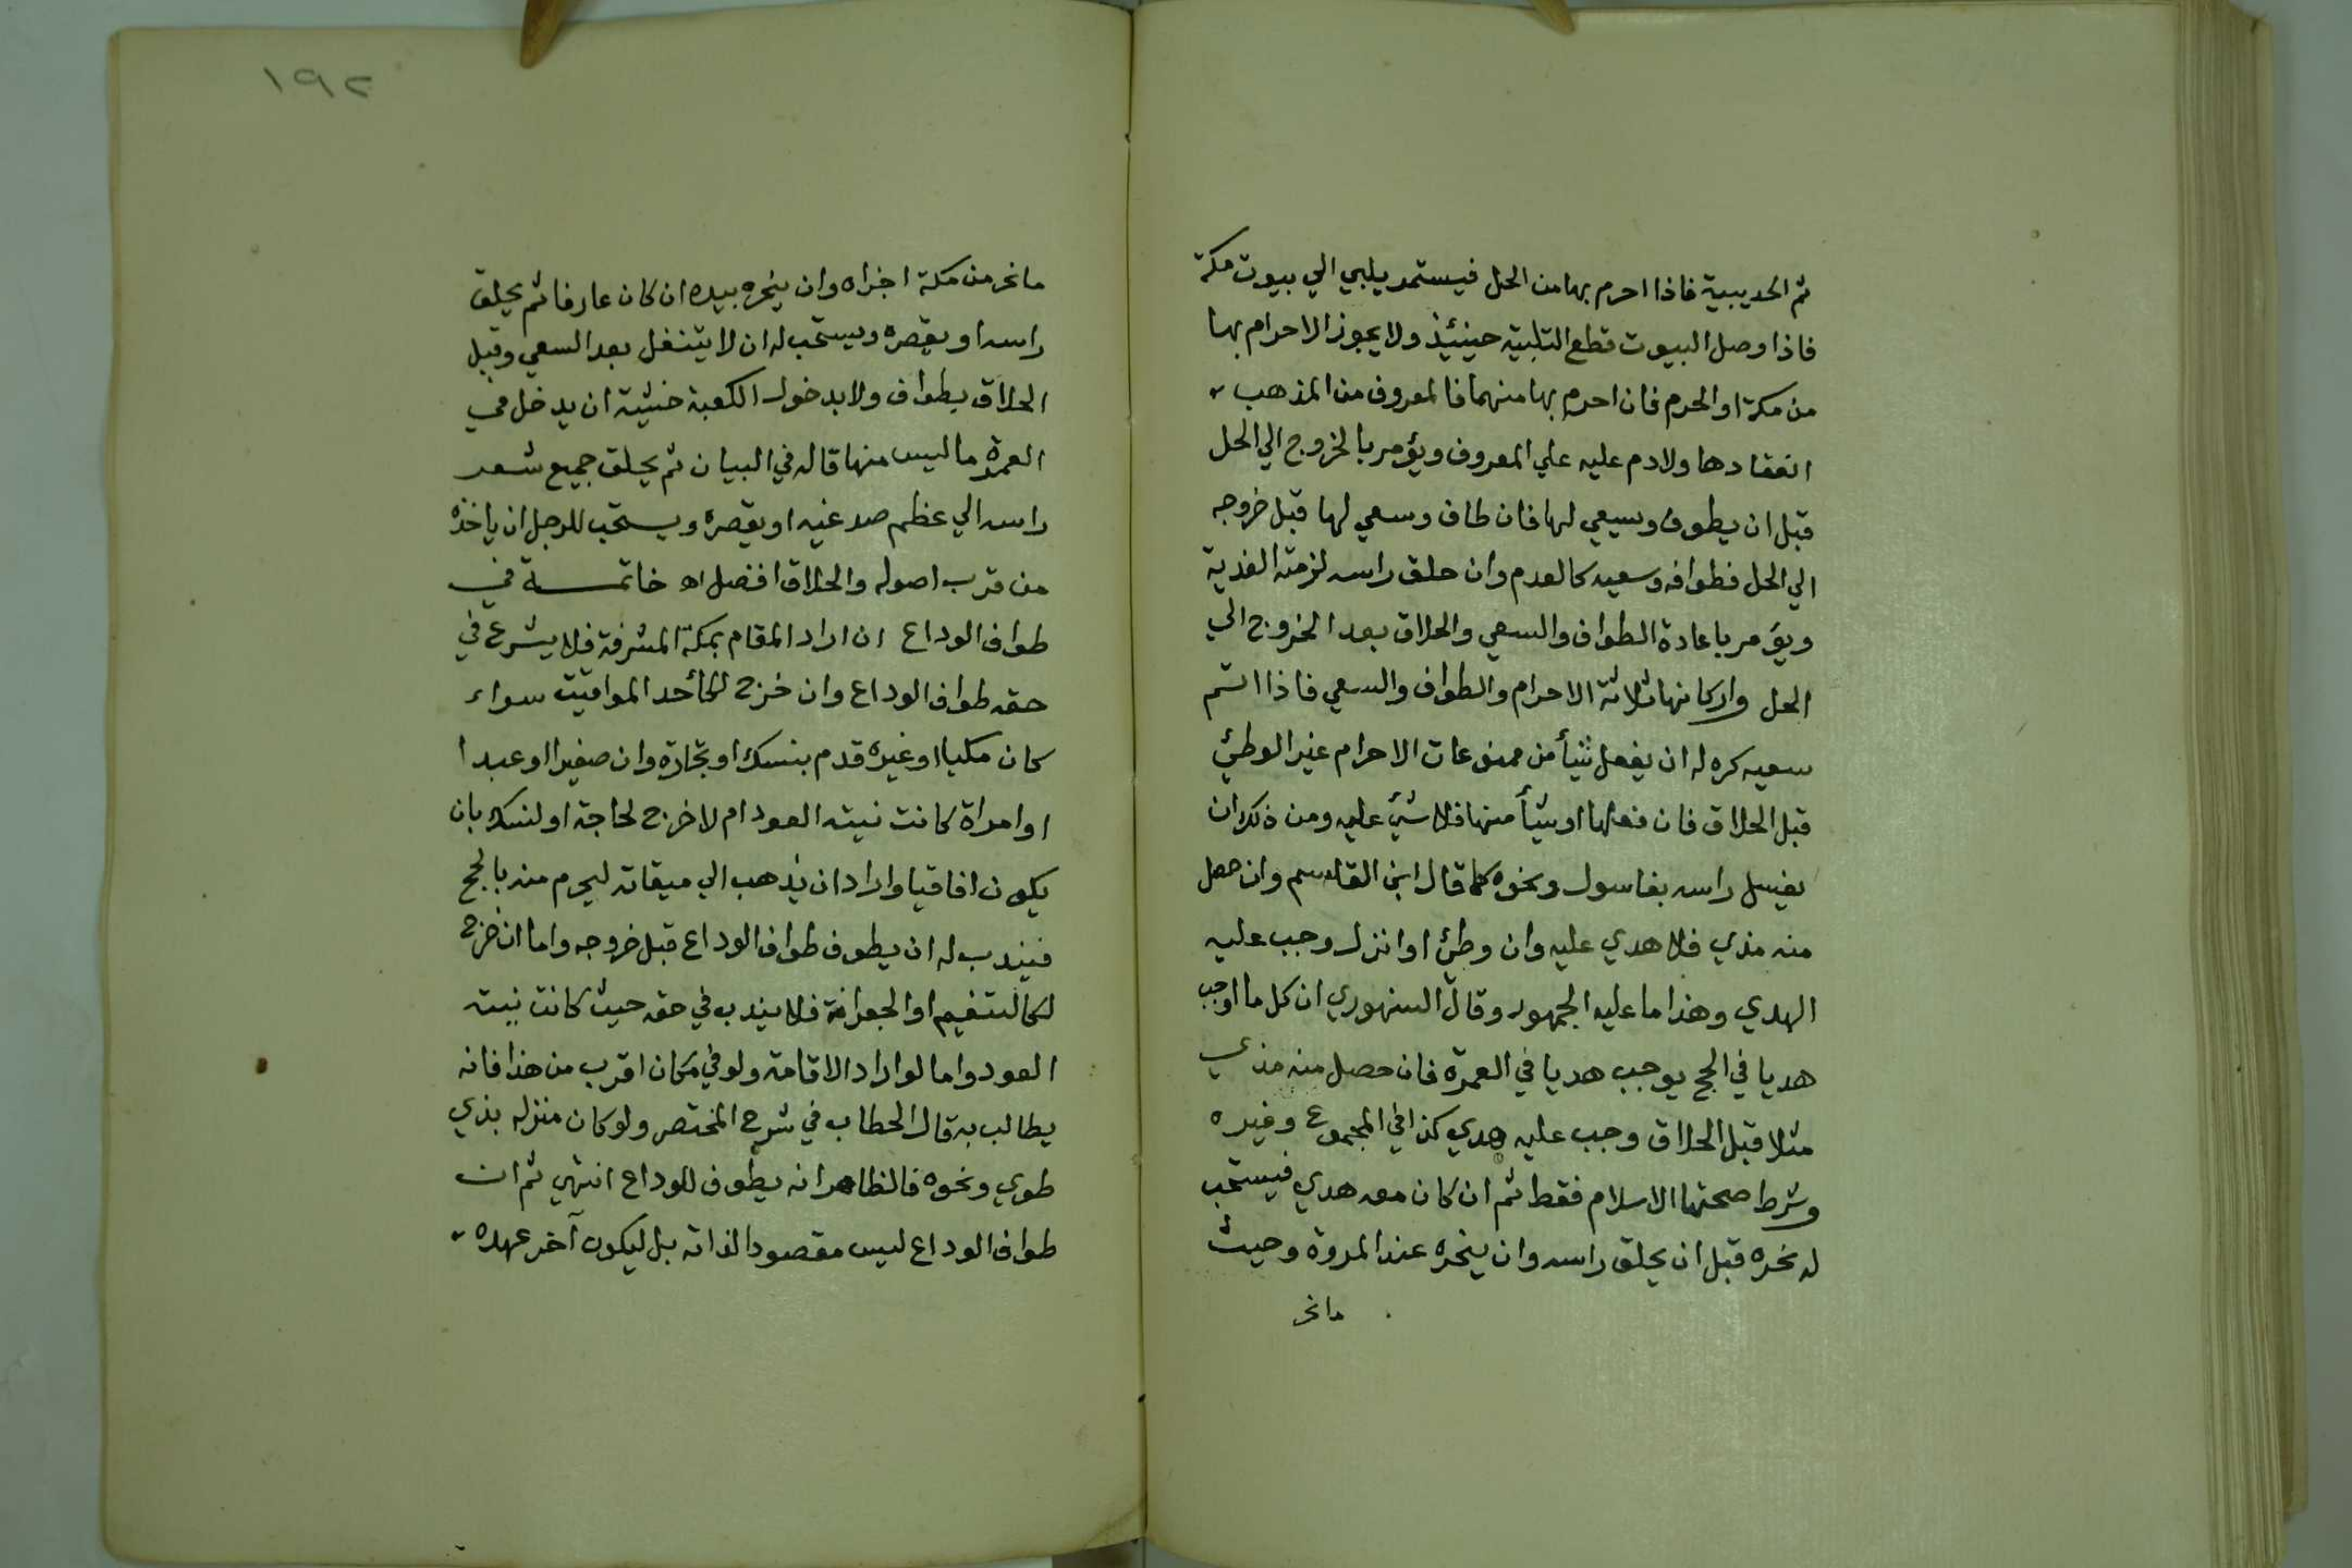 ثم الحديبية فاذا احرم بها من الحل فيستمر يلبي الي بيوت مكة
فاذا وصل البيوت قطع التلبية حينئذ ولا يجوز الاحرام بها
من مكة او الحرم فان احرم بها منهما فالمعروف من المذهب
انعقادها ولا دم عليه علي المعروف ويؤمر بالخروج الي الحل
قبل ان يطوف ويسعي لها فان طاف وسعي لها قبل خروجه
الي الحل فطوافه وسعيه كالعدم وان حلق راسه لزمته الفدية
ويؤمر باعادة الطواف والسعي والحلاق بعد الخروج الي
الحل واركانها ثلاثة الاحرام والطواف والسعي فاذا اتم
سعيه كره له ان يفعل شيأ من ممنوعات الاحرام غير الوطئ
قبل الحلاق فان فعلها او شيأ منها فلا شئ عليه ومن ذلك ان
يغسل راسه بغاسول ونحوه كما قال ابن القاسم وان حصل
منه مذي فلا هدي عليه وان وطئ او انزل وجب عليه
الهدي وهذا ما عليه الجمهور وقال السنهوري ان كل ما اوجب
هديا في الحج يوجب هديا في العمرة فان حصل منه مذي
مثلا قبل الحلاق وجب عليه هدي كذا في المجموع وغيره
وشرط صحتها الاسلام فقط ثم ان كان معه هدي فيستحب
له نحره قبل ان يحلق راسه وان ينحره عند المروة وحيث
ما نحر
١٩٢
ما نحر من مكة اجزاه وان ينحره بيده ان كان عارفا ثم يحلق
راسه او يقصره ويستحب له ان لا يتنفل بعد السعي وقبل
الحلاق بطواف ولا بدخول الكعبة خشية ان يدخل في
العمرة ما ليس منها قاله في البيان ثم يحلق جميع شعر
راسه الي عظم صدغيه او يقصره ويستحب للرجل ان ياخذه
من قرب اصوله والحلاق افضل اه خاتمة في
طواف الوداع ان اراد المقام بمكة المشرفة فلا يشرع في
حقه طواف الوداع وان خرج لكأحد المواقيت سواء
كان مكيا او غيره قدم بنسك او تجارة وان صغيرا او عبدا
او امراة كانت نيته العود ام لا خرج لحاجة او لنسك بان
يكون افاقيا واراد ان يذهب الي ميقاته ليحرم منه بالحج
فيندب له ان يطوف طواف الوداع قبل خروجه واما ان خرج
لكالتنعيم او الجعرانة فلا يندب في حقه حيث كانت نيته
العود واما لو اراد الاقامة ولو في مكان اقرب من هذا فانه
يطالب به قال الحطاب في شرح المختصر ولو كان منزله بذي
طوي ونحوه فالظاهر انه يطوف للوداع انتهي ثم ان
طواف الوداع ليس مقصودا لذاته بل ليكون آخر عهده